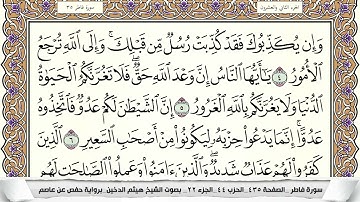 الجزء الثاني والعشرون
سورة فاطر ٣٥
وَإِن يُكَذِّبُوكَ فَقَدْ كُذِّبَتْ رُسُلٌ مِّن قَبْلِكَ ۚ وَإِلَى ٱللَّهِ تُرْجَعُ
ٱلْأُمُورُ ٤ يَـٰٓأَيُّهَا ٱلنَّاسُ إِنَّ وَعْدَ ٱللَّهِ حَقٌّ ۖ فَلَا تَغُرَّنَّكُمُ ٱلْحَيَوٰةُ
ٱلدُّنْيَا وَلَا يَغُرَّنَّكُم بِٱللَّهِ ٱلْغَرُورُ ٥ إِنَّ ٱلشَّيْطَـٰنَ لَكُمْ عَدُوٌّ فَٱتَّخِذُوهُ
عَدُوًّا ۚ إِنَّمَا يَدْعُوا۟ حِزْبَهُۥ لِيَكُونُوا۟ مِنْ أَصْحَـٰبِ ٱلسَّعِيرِ ٦ ٱلَّذِينَ
كَفَرُوا۟ لَهُمْ عَذَابٌ شَدِيدٌ ۖ وَٱلَّذِينَ ءَامَنُوا۟ وَعَمِلُوا۟ ٱلصَّـٰلِحَـٰتِ لَهُم
سورة فاطر _ الصفحة ٤٣٥ _ الحزب ٤٤ _ الجزء ٢٢ _ بصوت الشيخ هيثم الدخين _ برواية حفص عن عاصم